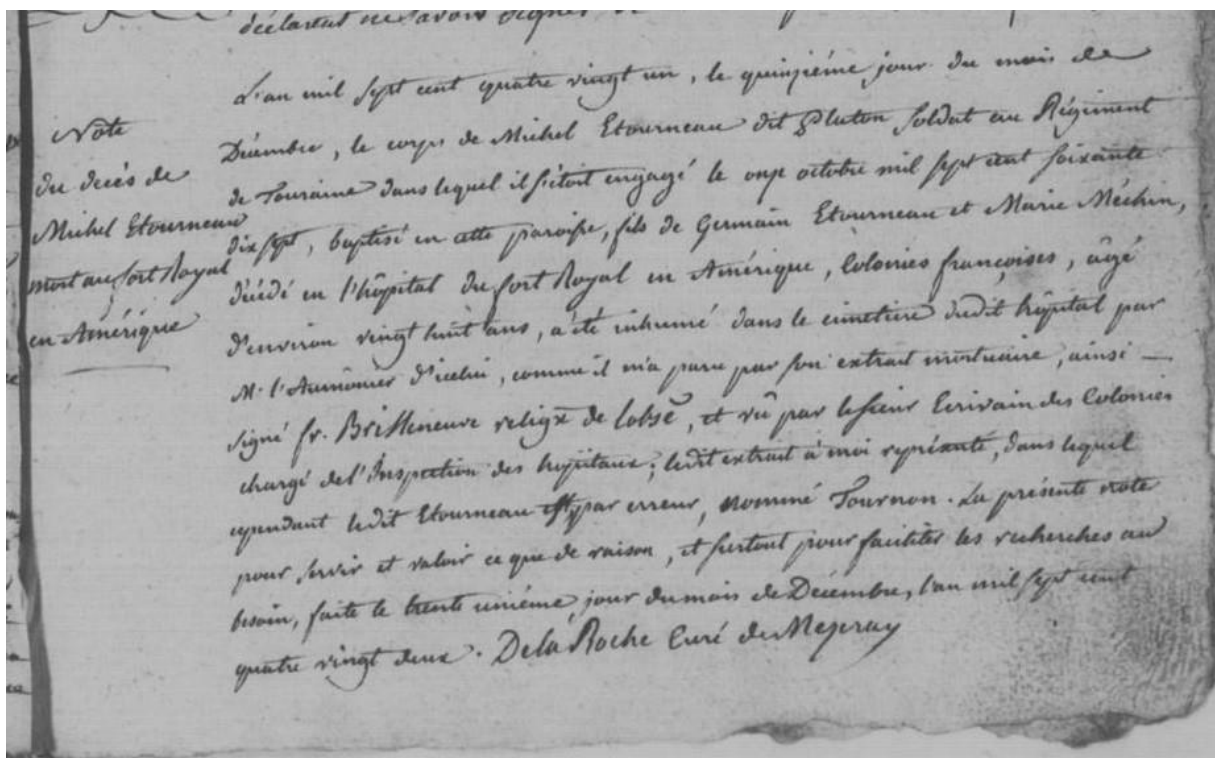 déclarent ne savoir signer
Note
du decès de
Michel Etourneau
mort au fort Royal
en Amérique
L'an mil sept cent quatre vingt un, le quinzième jour du mois de
Décembre, le corps de Michel Etourneau dit Pluton soldat au Régiment
de Touraine dans lequel il s'étoit engagé le onze octobre mil sept cent soixante
dix sept, baptisé en cette paroisse, fils de Germain Etourneau et Marie Méchin,
décédé en l'hôpital du fort Royal en Amérique, Colonies françoises, âgé
d'environ vingt huit ans, a été inhumé dans le cimetière dudit hôpital par
Mr. l'Aumônier d'icelui, comme il m'a paru par son extrait mortuaire, ainsi
signé fr. Brisseneuve religx de l'obsce, et vû par le sieur Ecrivain des Colonies
chargé de l'Inspection des hôpitaux; ledit extrait à moi représenté, dans lequel
cependant ledit Etourneau est, par erreur, nommé Tournon. La présente note
pour servir et valoir ce que de raison, et surtout pour faciliter les recherches au
besoin, faite le trente unième jour du mois de Décembre, l'an mil sept cent
quatre vingt deux. De la Roche Curé de Mezeray